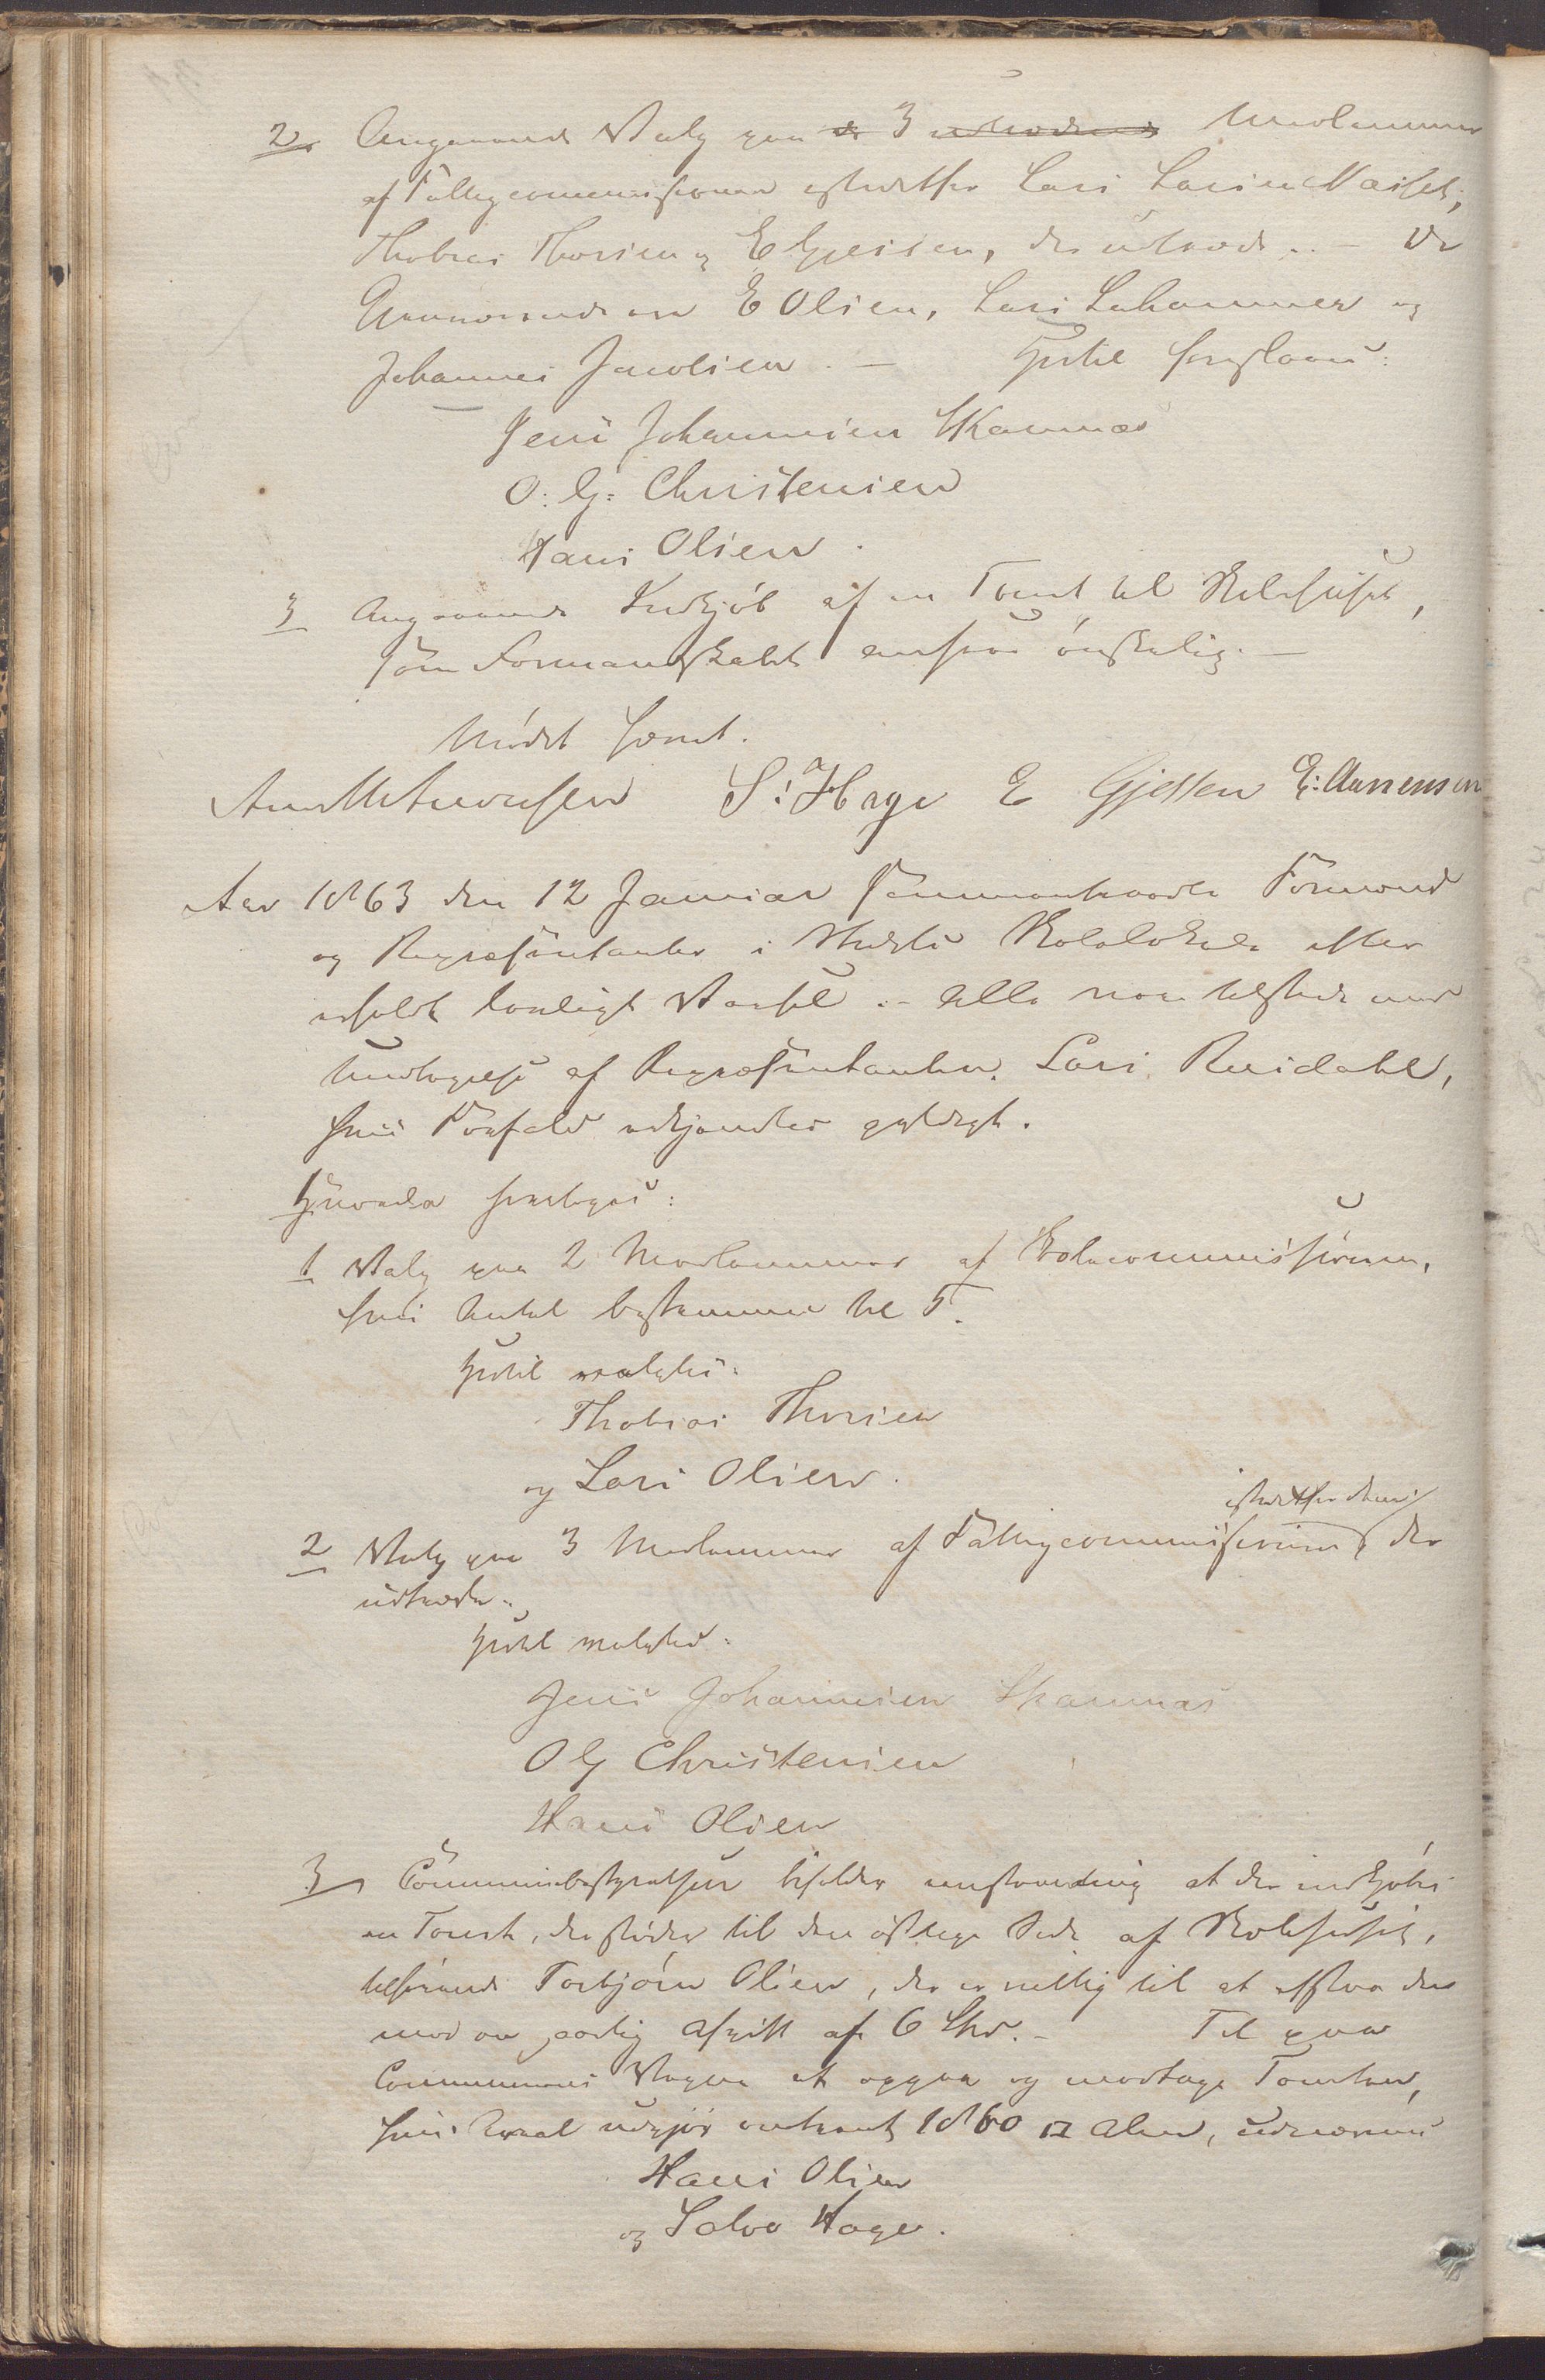 2, Angaaende Valg paa de 3 udtrædende Medlemmer
af Fattigcommissionen istedetfor Lars Larsen
Thobias Thorsen og E Gjessen, der udtræde. – De
Gjenværende ere E Olsen, Lars Lahammer og
Johannes Jacobsen. – Hertil foresloges:
Jens Johannesen Skamnæs
O. G. Christensen
Hans Olsen.
3 Angaaende Indkjöb af en Tomt til Skolehuset,
som Formandskabet ansees önskelig. –
Mödet hævet.
S. Hage E Gjessen E: Aanensen
Aar 1863 den 12 Januar sammentraadte Formænd
og Repræsentanter i Skolelokale efter
erholdt lovligt Varsel. – Alle vare tilstede med
Undtagelse af Repræsentanten Lars Reisdahl,
hvis Forfald erkjendtes gyldigt.
Hvorda foretoges:
1 Valg paa 2 Medlemmer af Skolecommissionen,
hvis Antal bestemmes til 5.
Hertil valgtes:
Thobias Thorsen
og Lars Olsen.
istedetfor dem
2 Valg paa 3 Medlemmer af Fattigcommissionen, der
udtræde.
Hertil valgtes:
Jens Johannesen Skamnæs
O G Christensen
Hans Olsen
3, Communebestyrelsen bifalder enstemmig at der indkjöbes
en Tomt, der stöder til den östlige Side af Skolehuset,
tilhörende Torbjörn Olsen, der er villig til at afstaa den
mod en aarlig Afgift af 6 Skd. – Til paa
Communens Vegne at opgaa og modtage Tomten,
hvis Areal udgjör omtrent 1860 □ Alen, udnævnes
Hans Olsen
og Salve Hage.